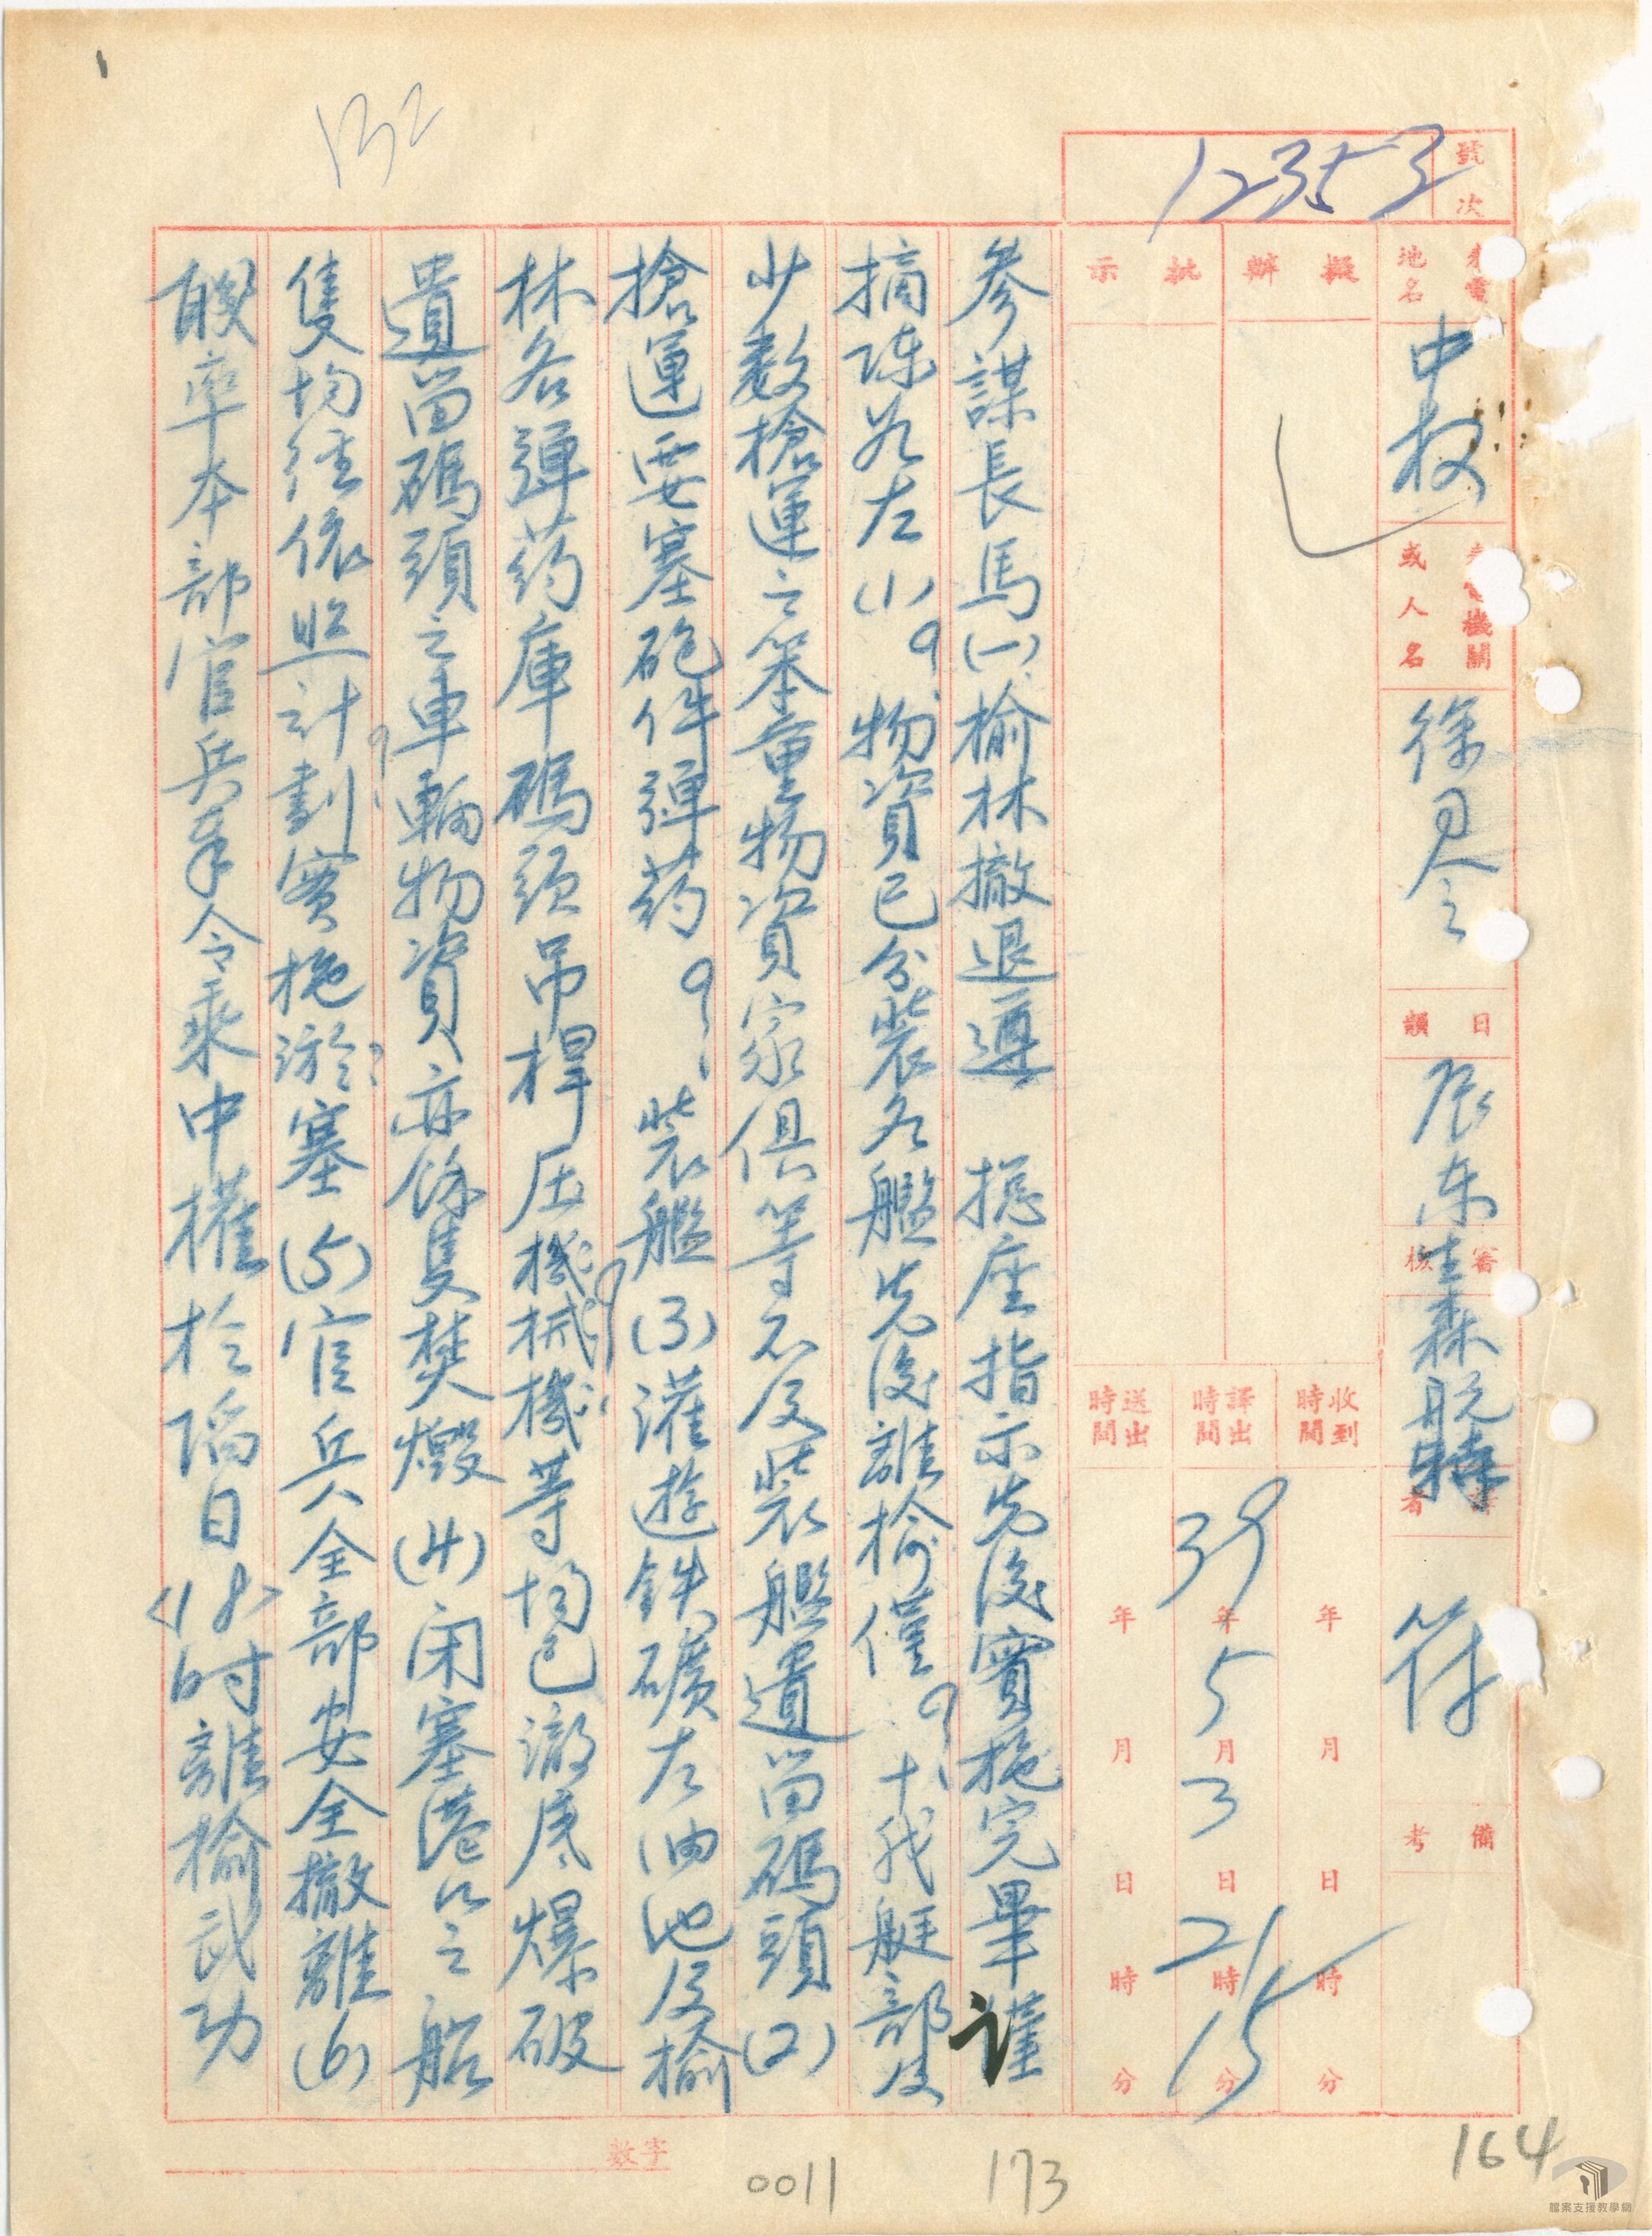 132
號次
12353
來電地名
中权
來電機關或人名
徐司令
日韻
辰东
審核
符
備考
擬辦
批示
收到時間
年月日時分
譯出時間
39年5月3日21時15分
送出時間
年月日時分
參謀長馬(一)榆林撤退遵 摠座指示先後實施完畢謹
摘陳於左(1)? 物資已分裝各艦先後離榆僅? 十我艇部及
少数搶運之笨重物資家俱等不及裝艦遺留碼頭(2)
搶運要塞砲件弹药? 裝艦(3)灌遊鉄礦左油池及榆
林各弹药庫碼頭吊桿压機械機等均已澈底爆破
遺留碼頭之車輛物資亦餘隻焚燬(4)闭塞港口之船
隻均経依照計劃實施淤塞(5)官兵全部安全撤離(6)
職率本部官兵奉令乘中權於陷日<18>时離榆武功
字數
0011
173
164
檔案支援教學網